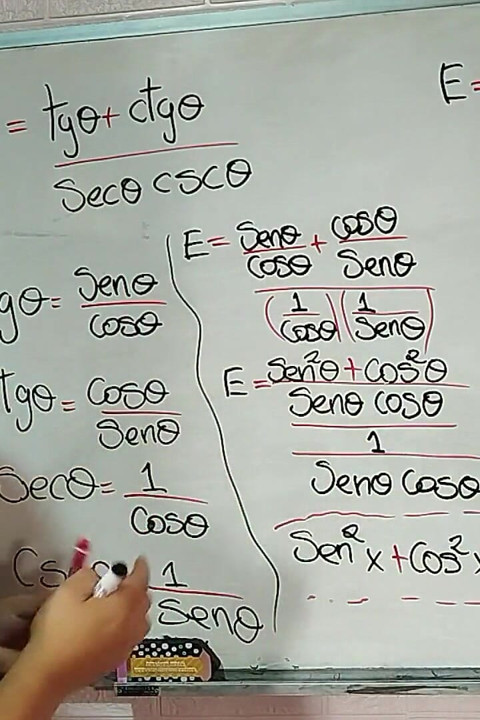 = tgθ + ctgθ
secθ cscθ
E=
gθ = senθ
cosθ
tgθ = cosθ
senθ
secθ = 1
cosθ
1
senθ
E = senθ + cosθ
cosθ senθ
(1)(1
cosθ senθ)
E = sen²θ + cos²θ
senθ cosθ
1
senθ cosθ
sen²x + cos²x